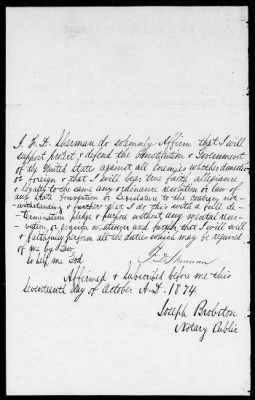 I. E. D. Sherman do solemnly Affirm that I will
support protect & defend the Constitution & Government
of the United States against all enemies whether domestic
or foreign & that I will bear true faith allegiance
& loyalty to the same any ordinance resolution or law of
any State Convention or Legislature to the contrary not-
withstanding & further that I do this with a full de-
termination pledge & purpose without any mental reser-
vation or evasion whatever and further that I will
& faithfully perform all the duties which may be required
of me by Law
So help me God.
Sherman
Affirmed & subscribed before me this
Seventeenth day of October A. D. 1874
Joseph Brobston
Notary Public